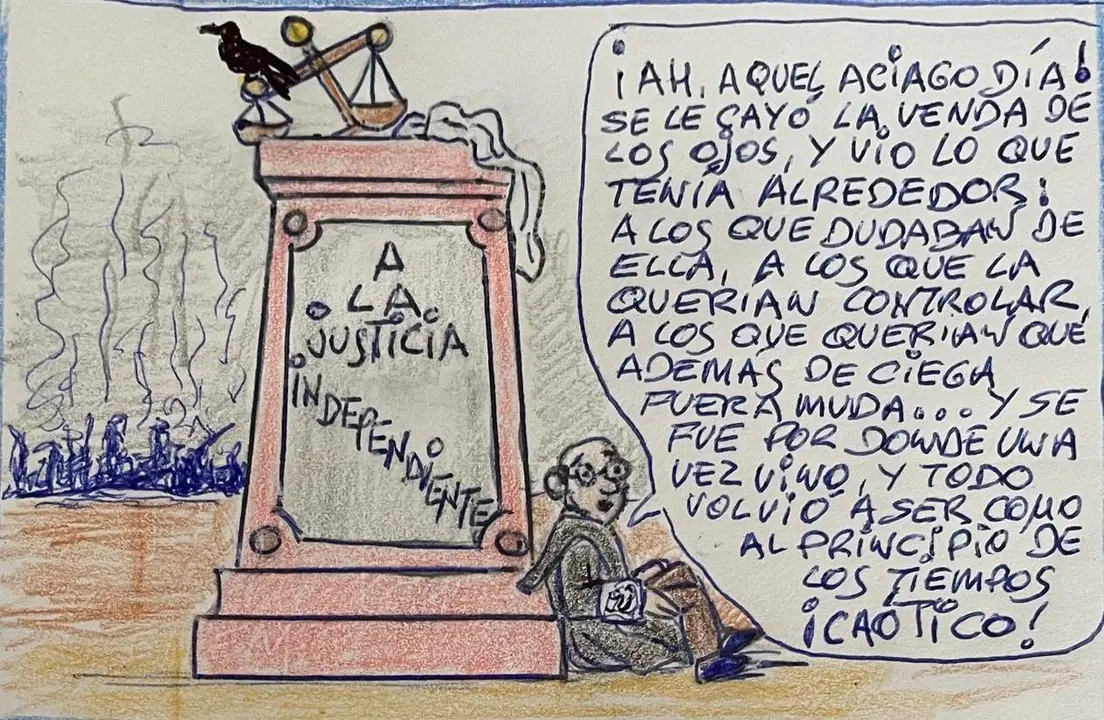 A
LA
JUSTICIA
INDEPENDIENTE
¡AH, AQUEL ACIAGO DÍA!
SE LE CAYÓ LA VENDA DE
LOS OJOS, Y VIO LO QUE
TENÍA ALREDEDOR:
A LOS QUE DUDABAN DE
ELLA, A LOS QUE LA
QUERIAN CONTROLAR,
A LOS QUE QUERIAN QUE
ADEMAS DE CIEGA
FUERA MUDA... Y SE
FUE POR DONDE UNA
VEZ VINO, Y TODO
VOLVIÓ A SER COMO
AL PRINCIPIO DE
LOS TIEMPOS
¡CAÓTICO!